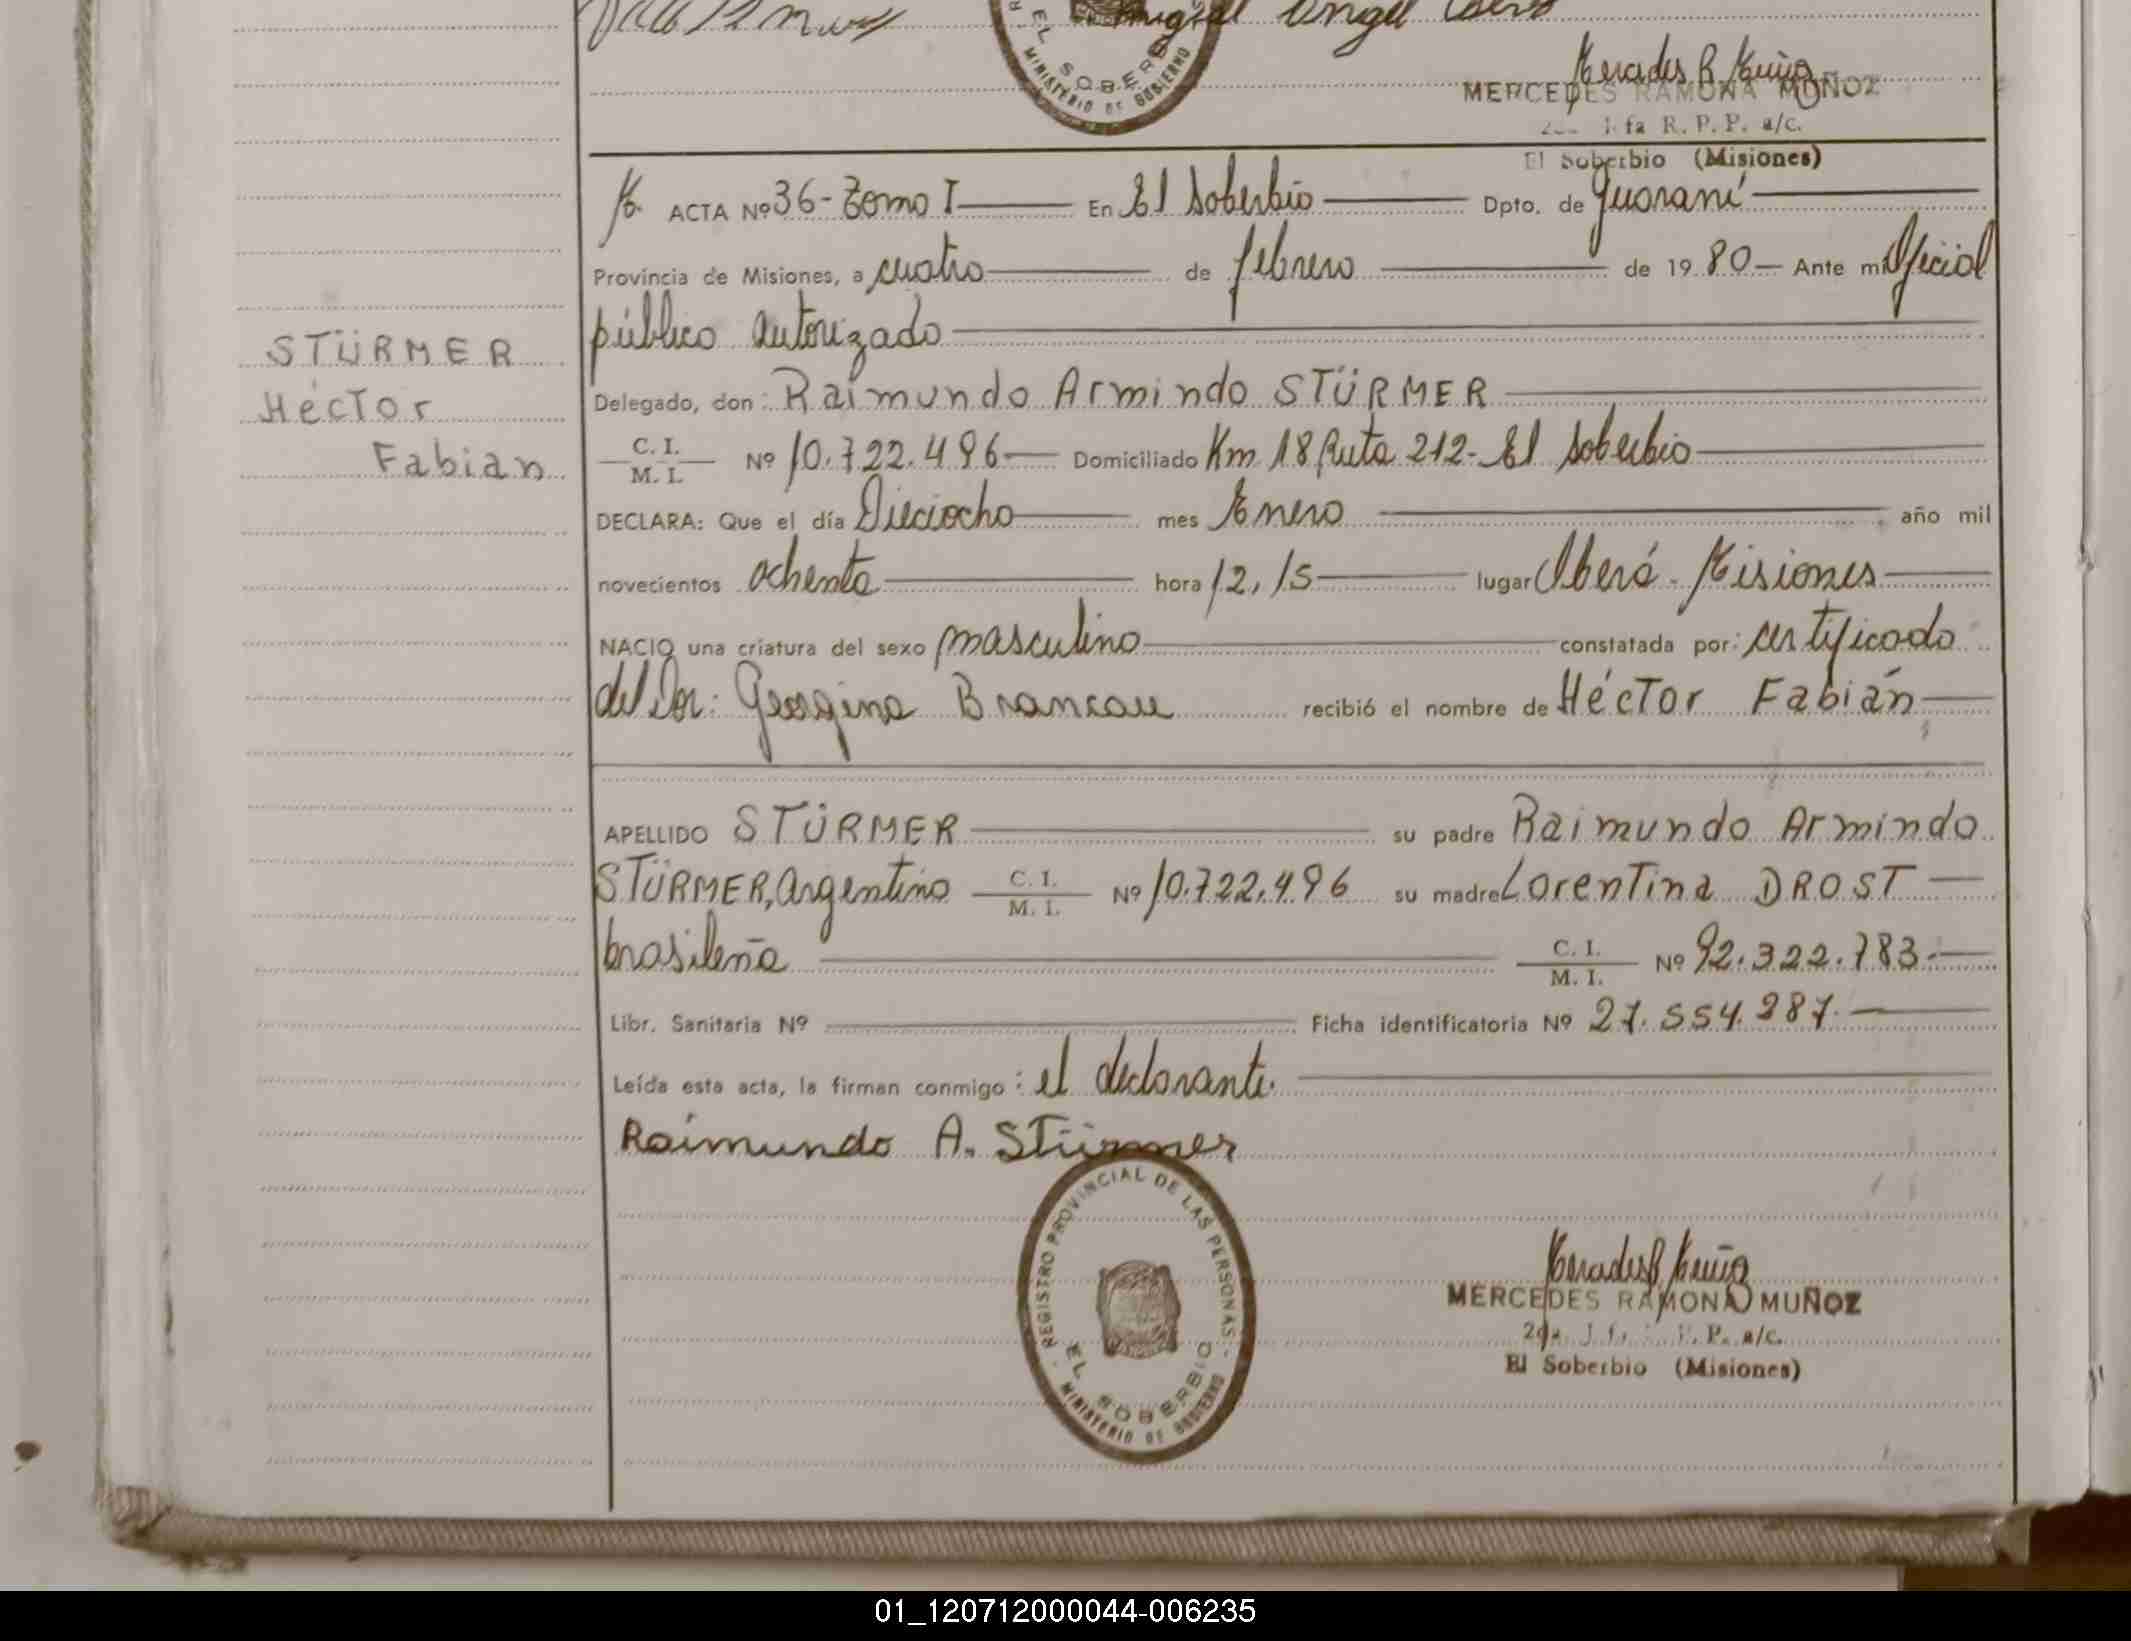 Miguel Angel
EL SOBERBIO
MINISTERIO DE GOBIERNO
MERCEDES RAMONA MUÑOZ
R. P. P. a/c.
El Soberbio (Misiones)
ACTA Nº 36 - Tomo I En El Soberbio Dpto. de Guaraní
Provincia de Misiones, a cuatro de febrero de 19 80 Ante mi Oficial
público autorizado
STÜRMER
Héctor
Fabian
Delegado, don: Raimundo Armindo STÜRMER
C. I.
M. I. Nº 10.722.496 Domiciliado Km 18 Ruta 212 - El Soberbio
DECLARA: Que el día Dieciocho mes Enero año mil
novecientos ochenta hora 12,15 lugar Oberá - Misiones
NACIO una criatura del sexo masculino constatada por: certificado
del Dr: Georgina recibió el nombre de Héctor Fabián
APELLIDO STÜRMER su padre Raimundo Armindo
STÜRMER, Argentino C. I. M. I. Nº 10.722.496 su madre Lorentina DROST
brasileña C. I. M. I. Nº 92.322.783.
Libr. Sanitaria Nº Ficha identificatoria Nº 27.554.287.
Leída esta acta, la firman conmigo: el declarante.
Raimundo A. Stürmer
REGISTRO PROVINCIAL DE LAS PERSONAS
EL SOBERBIO
MINISTERIO DE GOBIERNO
MERCEDES RAMONA MUÑOZ
P. a/c.
El Soberbio (Misiones)
01_120712000044-006235